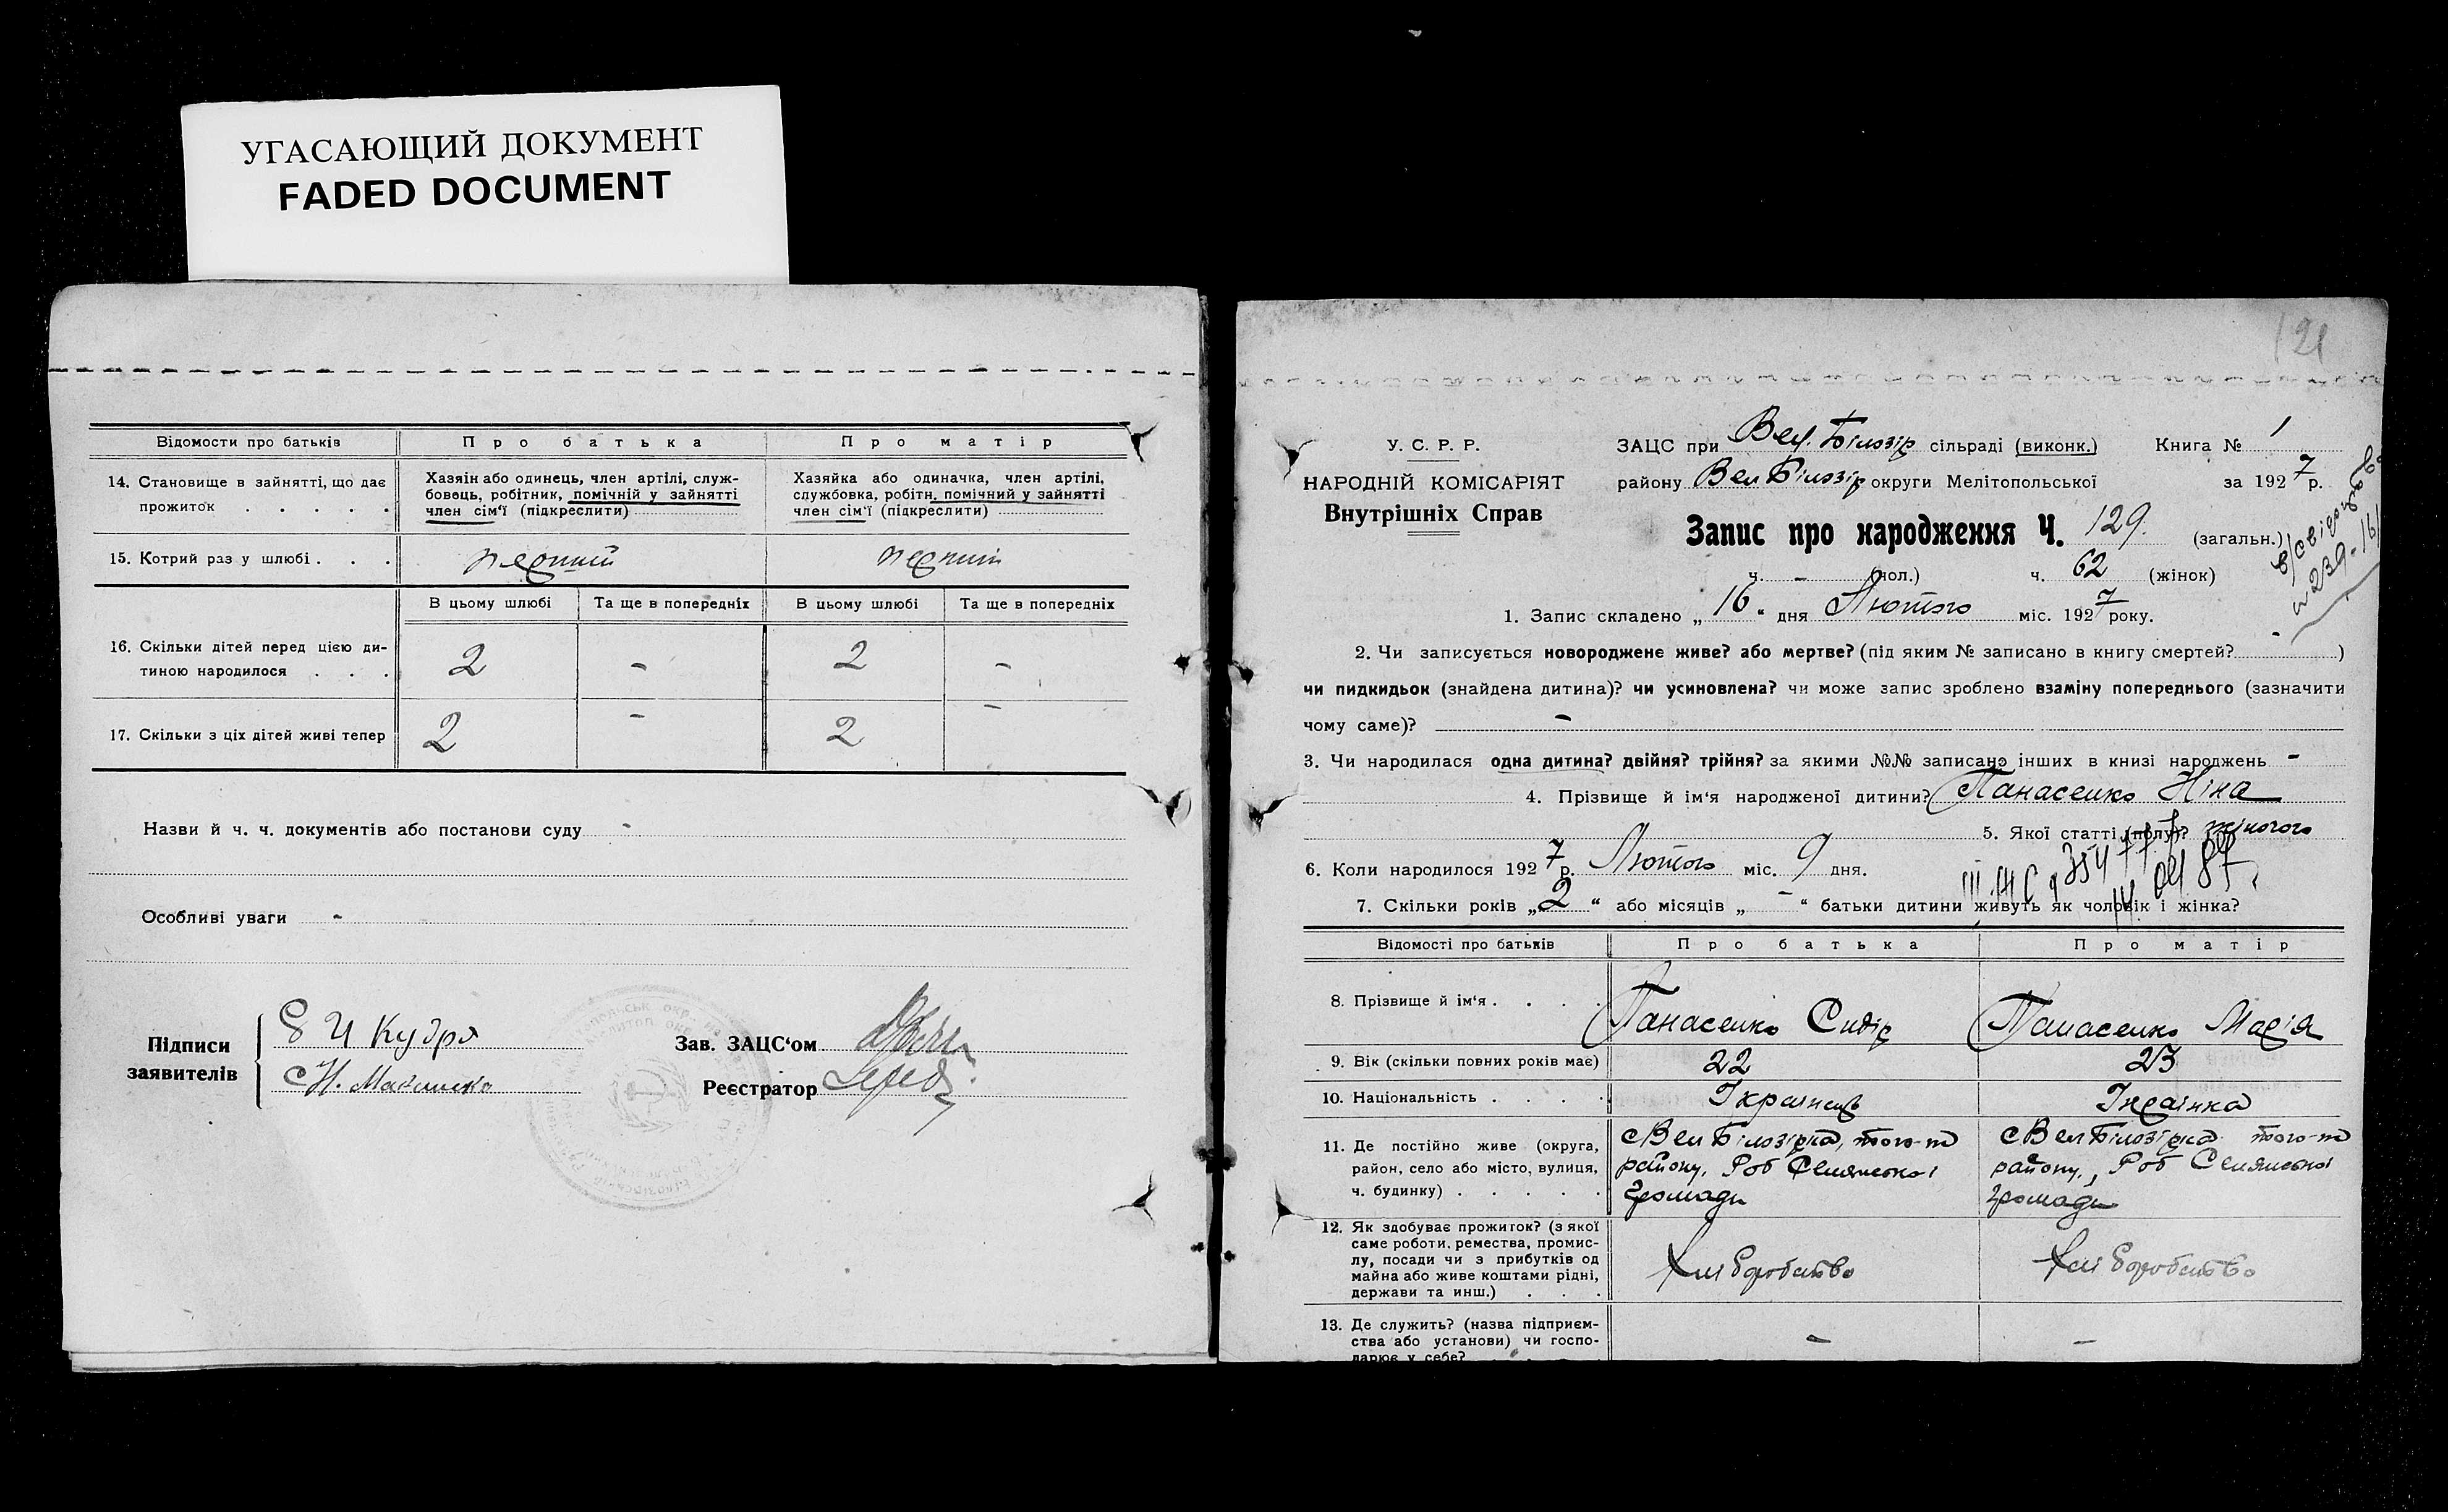 УГАСАЮЩИЙ ДОКУМЕНТ
FADED DOCUMENT
Відомости про батьків
Про батька
Про матір
14. Становище в зайнятті, що дає прожиток
Хазяін або одинець, член артілі, служ-
бовець, робітник, помічній у зайнятті
член сім'ї (підкреслити)
Хазяйка або одиначка, член артілі,
службовка, робітн. помічний у зайнятті
член сім'ї (підкреслити)
15. Котрий раз у шлюбі
перший
перший
В цьому шлюбі
Та ще в попередніх
В цьому шлюбі
Та ще в попередніх
16. Скільки дітей перед цією ди-
тиною народилося
2 - 2 -
17. Скільки з ціх дітей живі тепер
2 - 2 -
Назви й ч. ч. документів або постанови суду -
Особливі уваги -
Підписи
заявителів
Е И Кудря
Зав. ЗАЦС'ом
Реєстратор
121
У. С. Р. Р.
НАРОДНІЙ КОМІСАРІЯТ
Внутрішніх Справ
ЗАЦС при Вел. Білозір сільраді (виконк.) Книга № 1
району Вел Білозір округи Мелітопольської за 1927 р.
Запис про народження Ч. 129. (загальн.)
ч. - (чол.) ч. 62 (жінок)
1. Запис складено „16“ дня Лютого міс. 1927 року.
2. Чи записується новороджене живе? або мертве? (під яким № записано в книгу смертей? - )
чи пидкидьок (знайдена дитина)? чи усиновлена? чи може запис зроблено взаміну попереднього (зазначити
чому саме)? -
3. Чи народилася одна дитина? двійня? трійня? за якими №№ записано інших в книзі народжень -
4. Прізвище й ім'я народженої дитини? Панасенко Ніна
5. Якої статті (полу)? жіночого
6. Коли народилося 1927 р. Лютого міс. 9 дня.
7. Скільки років „2“ або місяців „-“ батьки дитини живуть як чоловік і жінка?
Відомості про батьків
Про батька
Про матір
8. Прізвище й ім'я
Панасенко Сидір
Панасенко Марія
9. Вік (скільки повних років має)
22
23
10. Національність
Україн
Українка
11. Де постійно живе (округа,
район, село або місто, вулиця,
ч. будинку)
с Вел Білозірка, того-ж
району, Роб Селянської
громади
с Вел Білозірка того-ж
району, Роб Селянської
громади
12. Як здобуває прожиток? (з якої
саме роботи, ремества, промис-
лу, посади чи з прибутків од
майна або живе коштами рідні,
держави та инш.)
Хліборобство
Хліборобство
13. Де служить? (назва підприєм-
ства або установи) чи госпо-
дарює у себе?
-
-